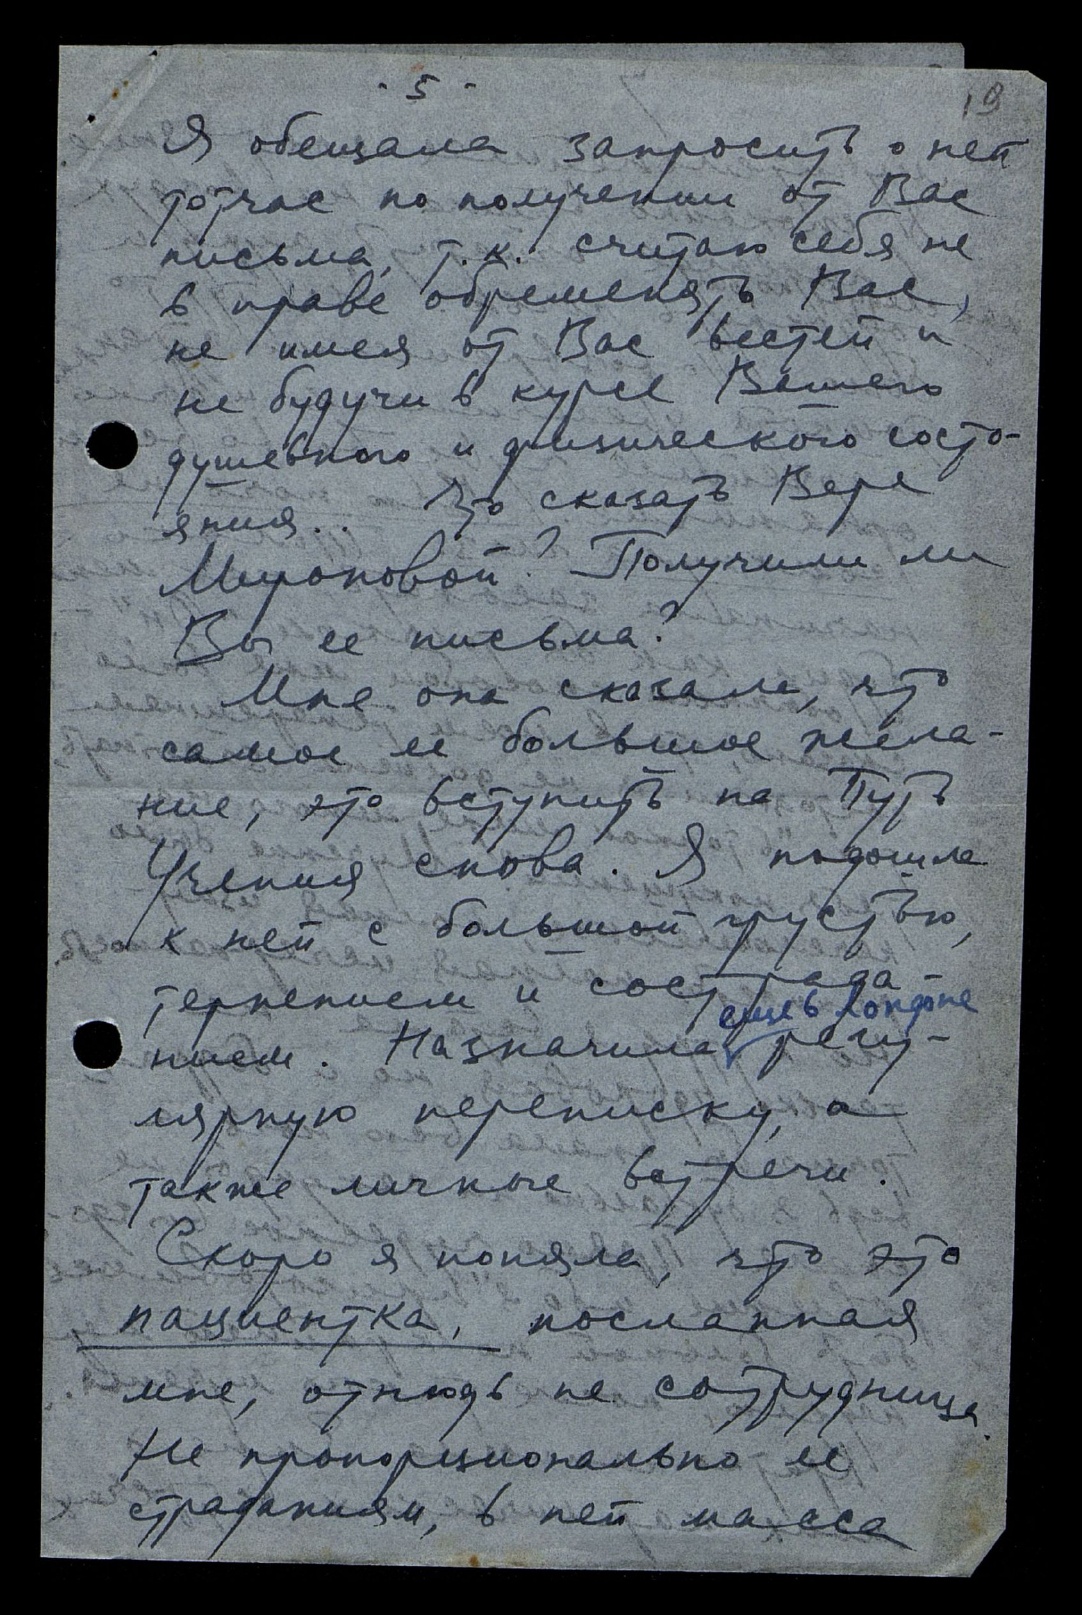 - 5 -
19
Я обещала запросить о ней
тотчас по получении от Вас
письма, т.к. считаю себя не
в праве обременять Вас,
не имея от Вас вестей и
не будучи в курсе Вашего
душевного и физического состо-
яния.. Что сказать Вере
Мироновой? Получили ли
Вы ее письма?
Мне она сказала, что
самое ее большое жела-
ние, это вступить на Путь
Учения снова. Я подошла
к ней с большой грустью,
терпением и сострада-
еще в Лондоне
нием. Назначила регу-
лярную переписку, а
также личные встречи.
Скоро я поняла, что это
пациентка, посланная
мне, отнюдь не сотрудница.
Не пропорционально ее
страданиям, в ней масса